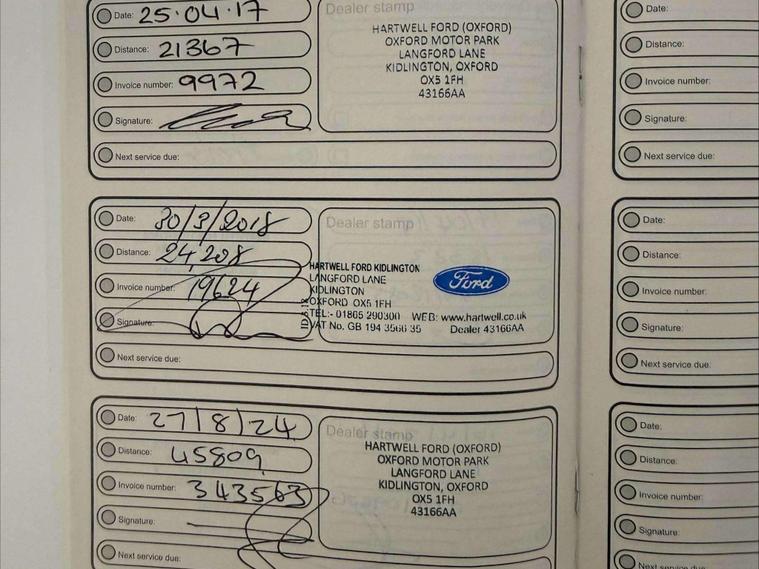 Date: 25.04.17
Distance: 21367
Invoice number: 9972
Signature:
Next service due:
Dealer stamp
HARTWELL FORD (OXFORD)
OXFORD MOTOR PARK
LANGFORD LANE
KIDLINGTON, OXFORD
OX5 1FH
43166AA
Date: 30/3/2018
Distance: 24,208
Invoice number: 19624
Signature:
Next service due:
Dealer stamp
HARTWELL FORD KIDLINGTON
LANGFORD LANE
KIDLINGTON
OXFORD OX5 1FH
TEL:- 01865 290300 WEB: www.hartwell.co.uk
VAT No. GB 194 3566 35 Dealer 43166AA
Ford
Date: 27/8/24
Distance: 45809
Invoice number: 343563
Signature:
Next service due:
Dealer stamp
HARTWELL FORD (OXFORD)
OXFORD MOTOR PARK
LANGFORD LANE
KIDLINGTON, OXFORD
OX5 1FH
43166AA
Date:
Distance:
Invoice number:
Signature:
Next service due:
Date:
Distance:
Invoice number:
Signature:
Next service due:
Date:
Distance:
Invoice number:
Signature:
Next service due: